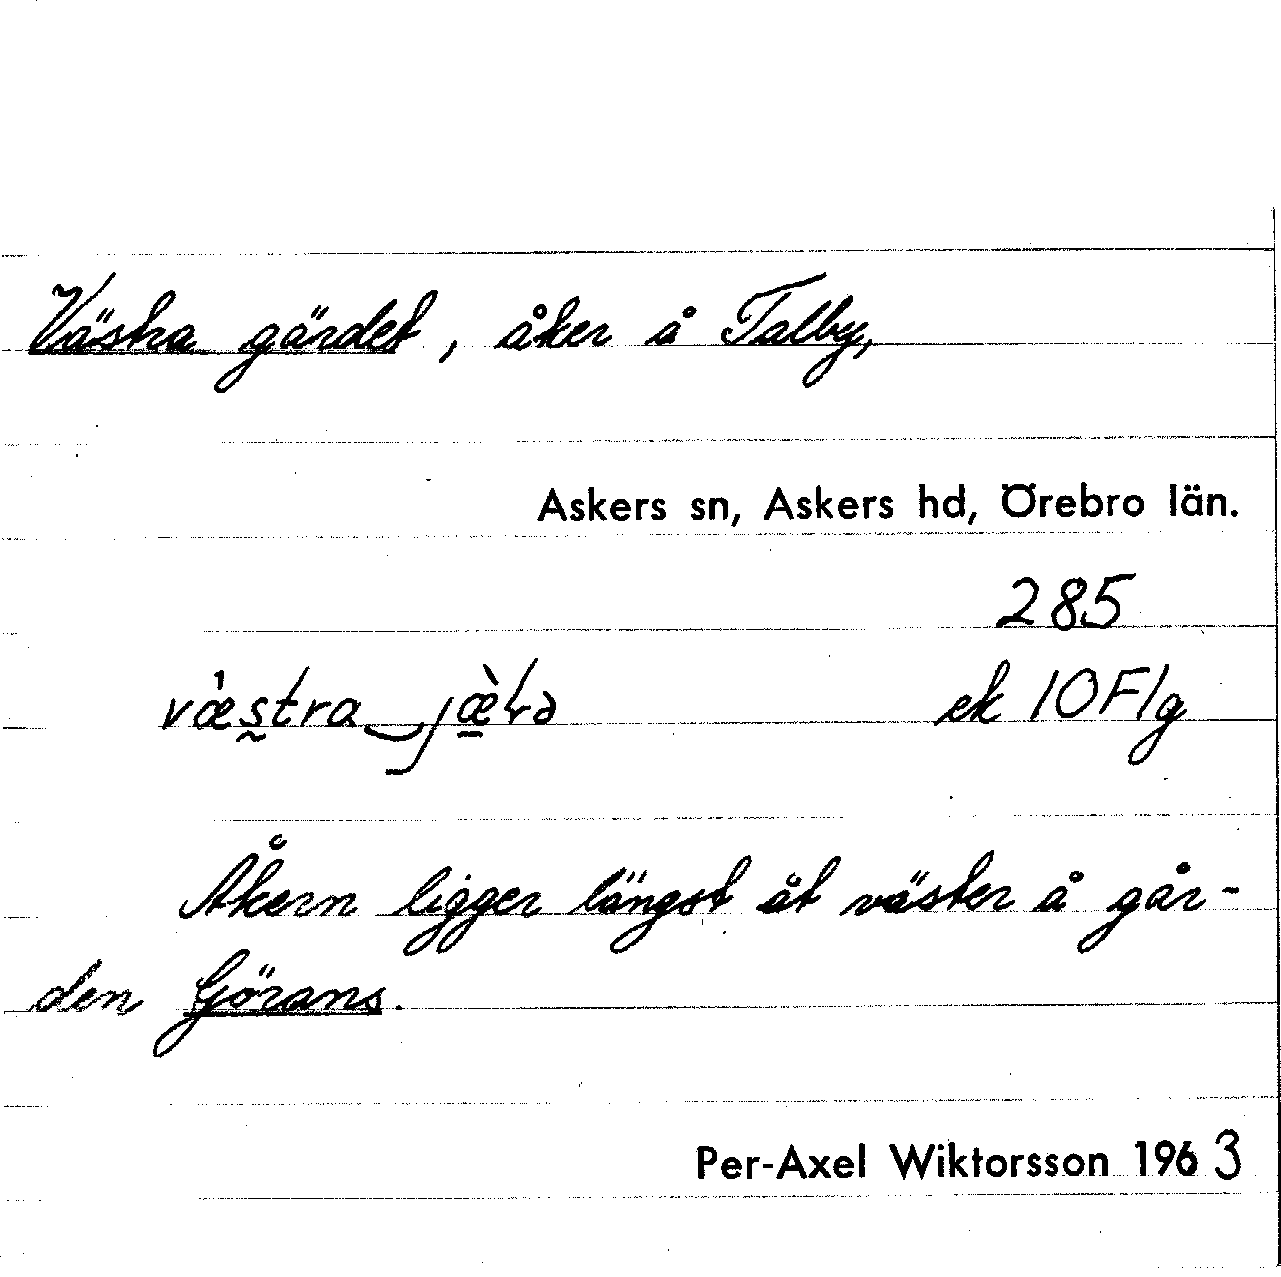 Västra gärdet, åker å Talby,
Askers sn, Askers hd, Örebro län.
285
ek 10F1g
Åkern ligger längst åt väster å går-
den Görans.
Per-Axel Wiktorsson 1963